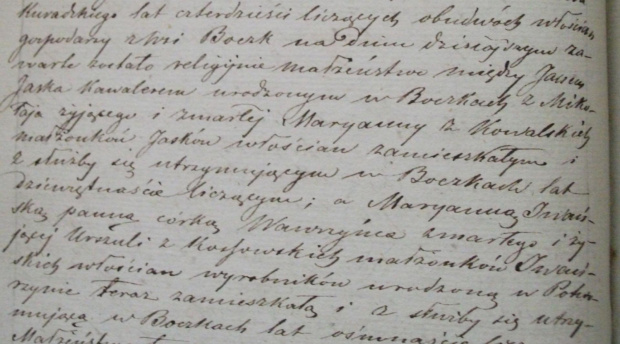 Kuradzkiego lat czterdzieści liczących obudwóch włościan
gospodarzy z wsi Boczk na dniu dzisiejszym za-
warte zostało religijnie małżeństwo między Janem
Jaska Kawalerem urodzonym w Boczkach z Miko-
łaja żyjącego i zmarłej Maryanny z Kowalskich
małżonków Jasków włościan zamieszkałym i
z służby się utrzymującym w Boczkach lat
dziewiętnaście liczącym; a Maryanną Iwań-
ską panną córką Wawrzyńca zmarłego i ży-
jącej Urszuli z małżonków Iwań-
skich włościan wyrobników urodzoną w
teraz zamieszkałą i z służby się utrzy-
mującą w Boczkach lat ośmnaście